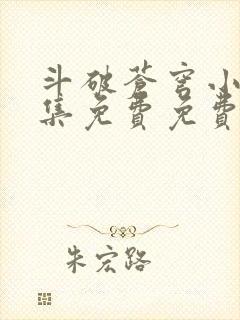 斗破苍穹小
集免费免费
朱宏路